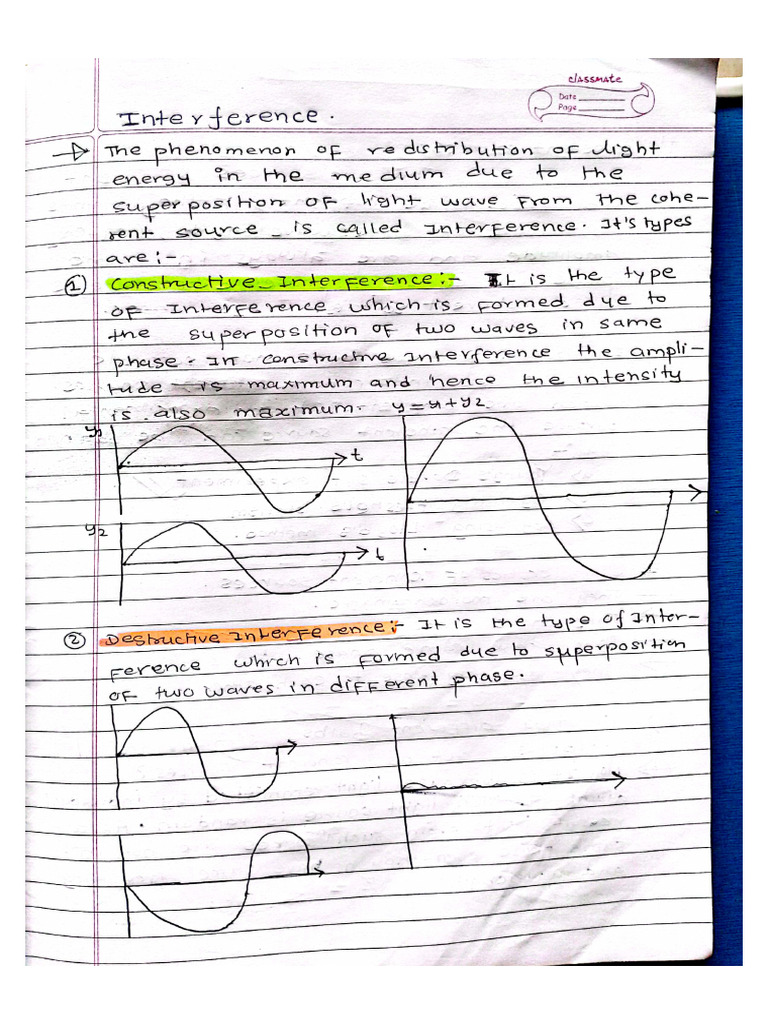 classmate
Date
Page
Interference.
The phenomenon of redistribution of light
energy in the medium due to the
superposition of light wave from the cohe-
rent source is called Interference. It's types
are:-
① Constructive Interference:- It is the type
of Interference which is formed due to
the superposition of two waves in same
phase. In constructive Interference the ampli-
tude is maximum and hence the intensity
is also maximum. y = y1 + y2
y1
t
y2
t
② Destructive Interference:- It is the type of Inter-
ference which is formed due to superposition
of two waves in different phase.